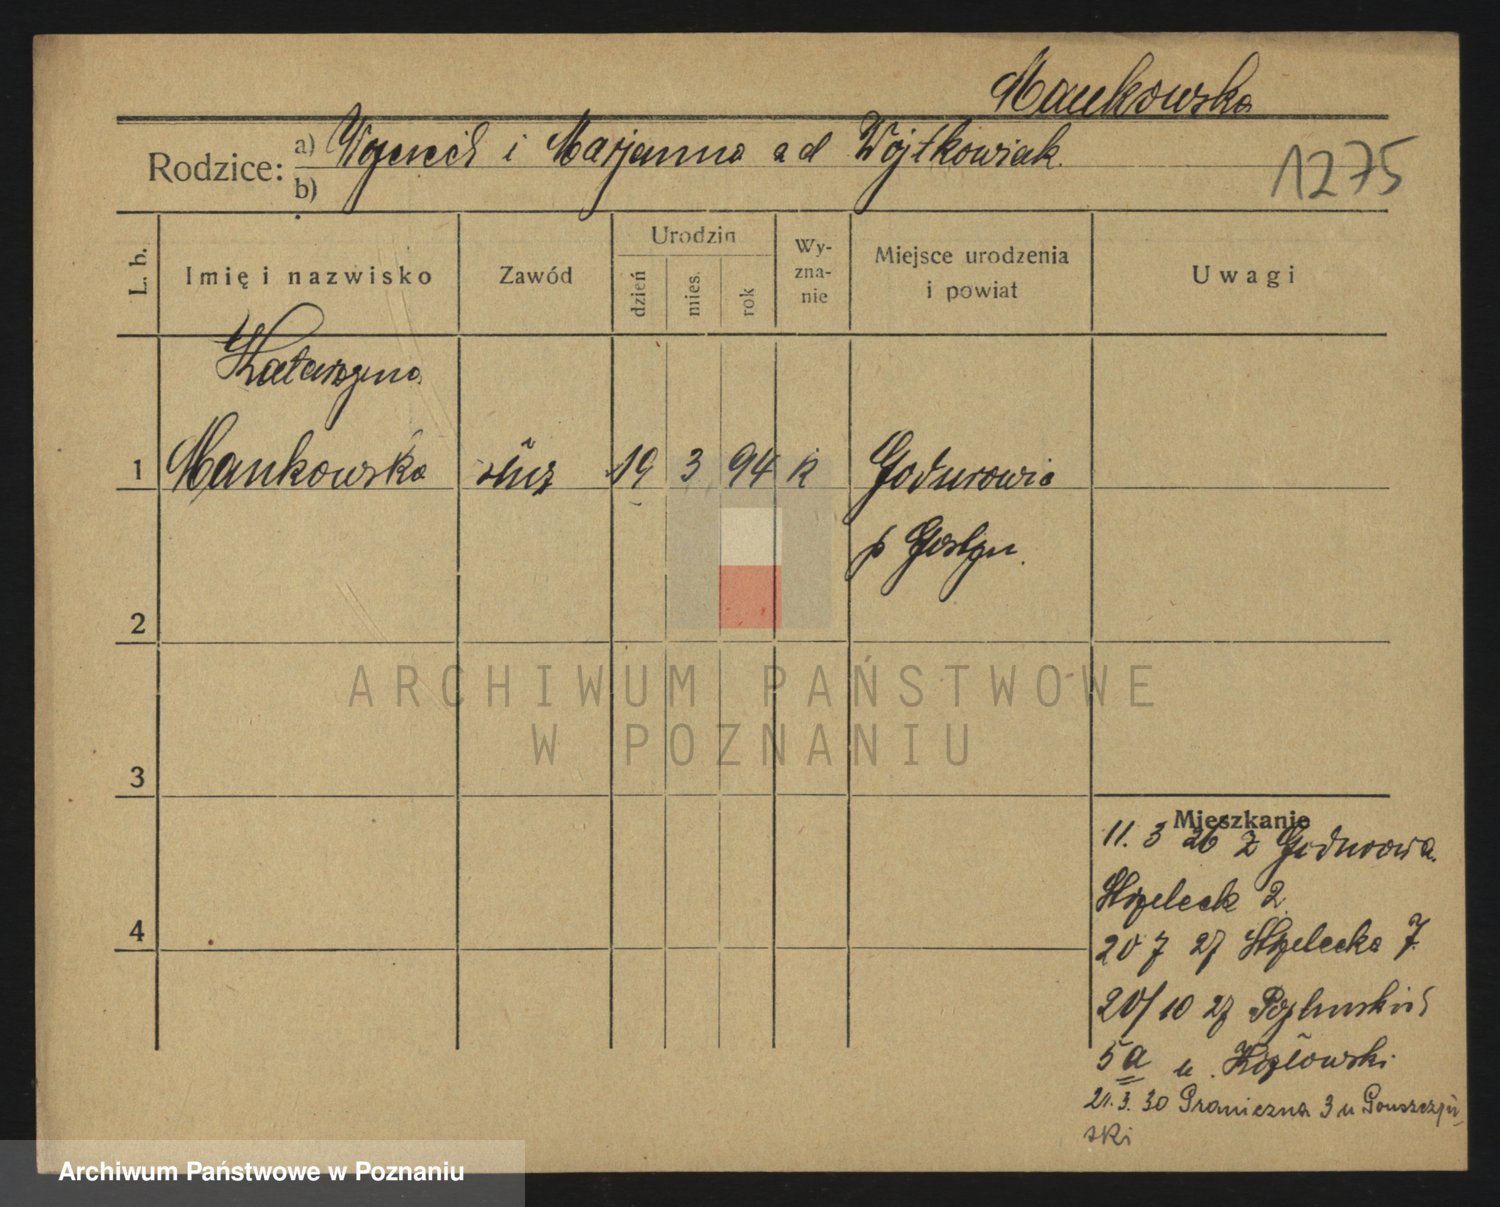 Mankowska
Rodzice: a) Wojciech i Marjanna a d Wojtkowiak.
b)
1275
L. b.
Imię i nazwisko
Zawód
Urodzin
dzień
mies.
rok
Wy-
zna-
nie
Miejsce urodzenia
i powiat
Uwagi
Katarzyna
1 Mankowska służ 19 3 94 k Godurowie
p Gostyn.
2
ARCHIWUM PAŃSTWOWE
W POZNANIU
3
Mieszkanie
11. 3 26 z Godurowa.
Strzeleck 2
4
20 7 27 Strzelecka 7.
20/10 27
5a u. Kozłowski
21.3.30 Graniczna 3 u
ski
Archiwum Państwowe w Poznaniu